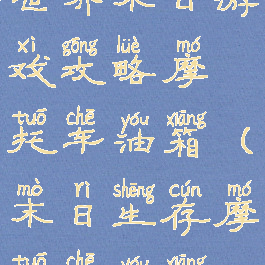 xì gōng lüè mó
戏攻略摩
tuō chē yóu xiāng
托车油箱(
mò rì shēng cún mó
末日生存摩
tuō chē yóu xiāng